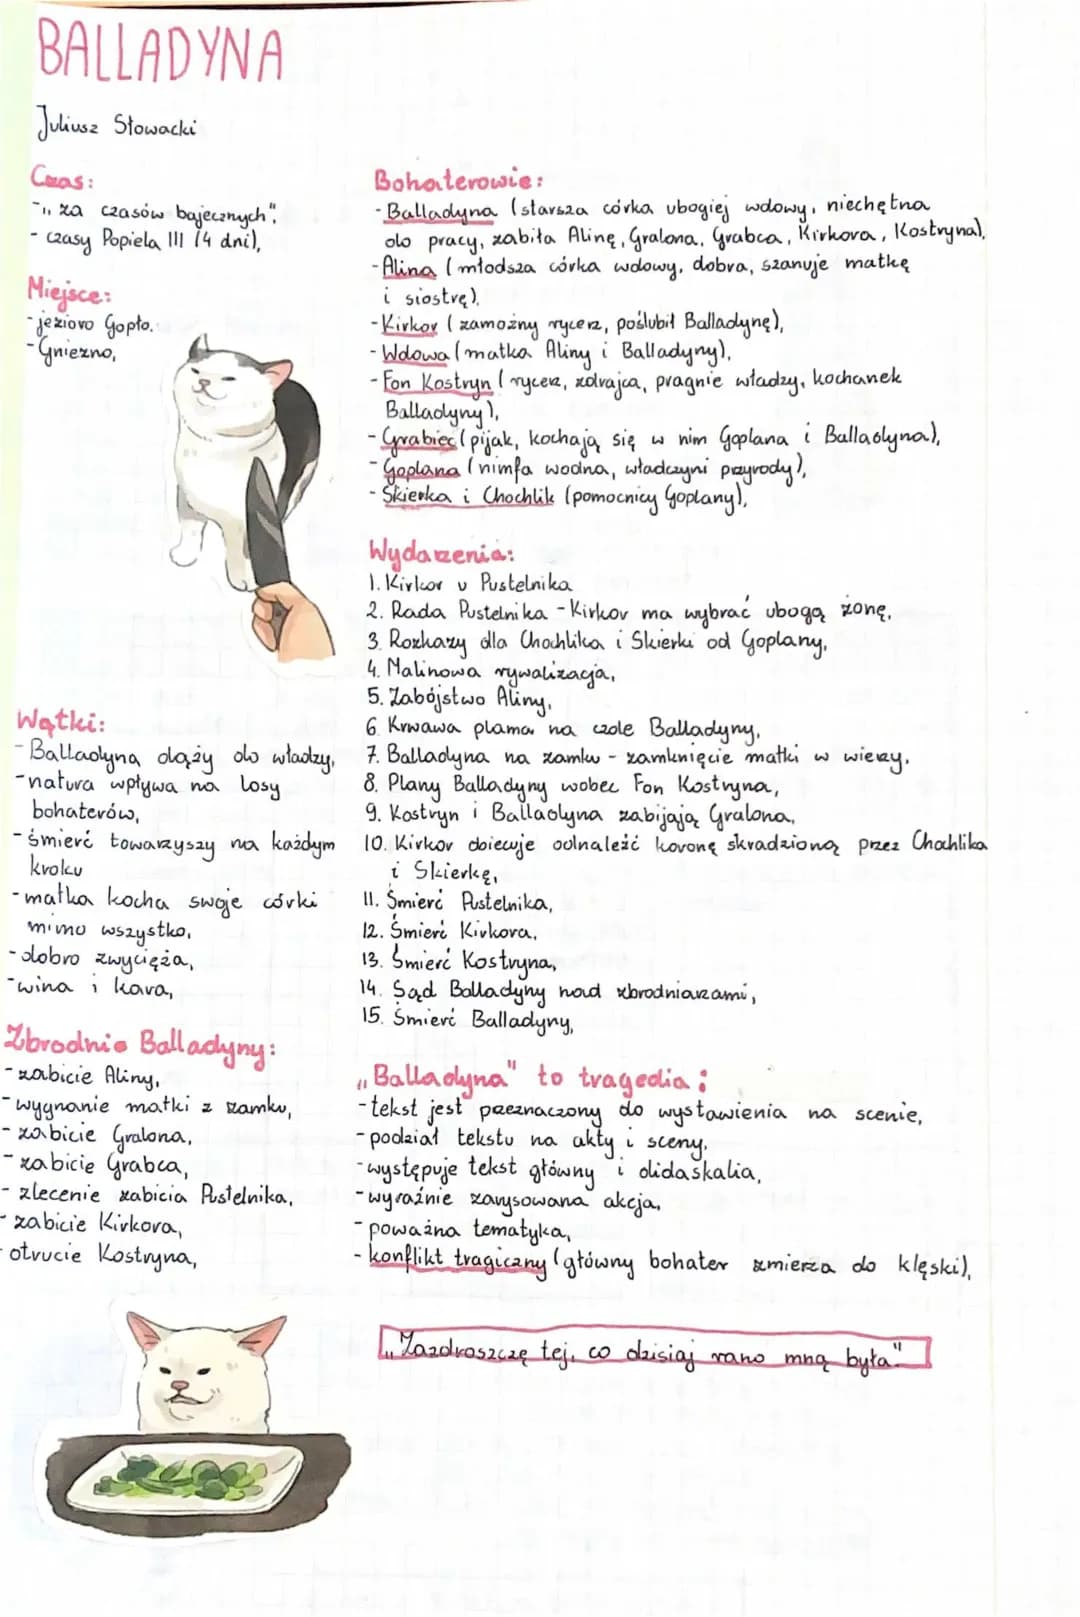 BALLADYNA
Juliusz Słowacki
Czas:
- "za czasów bajecznych",
- czasy Popiela III (4 dni),
Miejsce:
- jezioro Gopło,
- Gniezno,
Wątki:
- Balladyna dąży do władzy,
- natura wpływa na losy
bohaterów,
- śmierć towarzyszy na każdym
kroku
- matka kocha swoje córki
mimo wszystko,
- dobro zwycięża,
- wina i kara,
Zbrodnie Balladyny:
- zabicie Aliny,
- wygnanie matki z zamku,
- zabicie Gralona,
- zabicie Grabca,
- zlecenie zabicia Pustelnika,
- zabicie Kirkora,
- otrucie Kostryna,
Bohaterowie:
- Balladyna (starsza córka ubogiej wdowy, niechętna
do pracy, zabiła Alinę, Gralona, Grabca, Kirkora, Kostryna),
- Alina (młodsza córka wdowy, dobra, szanuje matkę
i siostrę),
- Kirkor (zamożny rycerz, poślubił Balladynę),
- Wdowa (matka Aliny i Balladyny),
- Fon Kostryn (rycerz, zdrajca, pragnie władzy, kochanek
Balladyny),
- Grabiec (pijak, kochają się w nim Goplana i Balladyna),
- Goplana (nimfa wodna, władczyni przyrody),
- Skierka i Chochlik (pomocnicy Goplany),
Wydarzenia:
1. Kirkor u Pustelnika
2. Rada Pustelnika - Kirkor ma wybrać ubogą żonę,
3. Rozkazy dla Chochlika i Skierki od Goplany,
4. Malinowa rywalizacja,
5. Zabójstwo Aliny,
6. Krwawa plama na czole Balladyny,
7. Balladyna na zamku - zamknięcie matki w wieży,
8. Plany Balladyny wobec Fon Kostryna,
9. Kostryn i Balladyna zabijają Gralona,
10. Kirkor obiecuje odnaleźć koronę skradzioną przez Chochlika
i Skierkę,
11. Śmierć Pustelnika,
12. Śmierć Kirkora,
13. Śmierć Kostryna,
14. Sąd Balladyny nad zbrodniarzami,
15. Śmierć Balladyny,
„Balladyna" to tragedia:
- tekst jest przeznaczony do wystawienia na scenie,
- podział tekstu na akty i sceny,
- występuje tekst główny i didaskalia,
- wyraźnie zarysowana akcja,
- poważna tematyka,
- konflikt tragiczny (główny bohater zmierza do klęski),
„Zazdroszczę tej, co dzisiaj rano mną była"